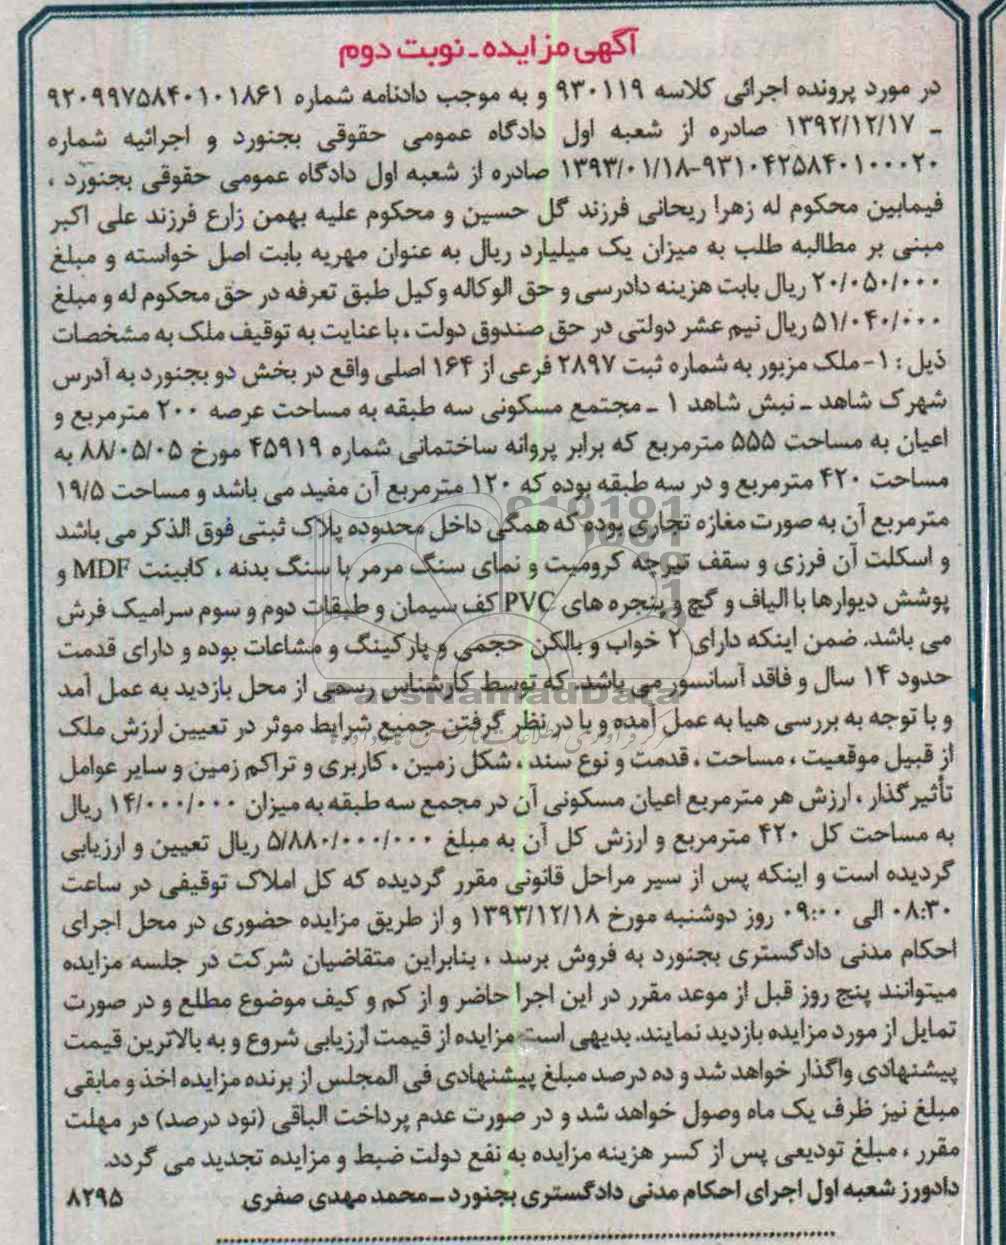 آگهی مزایده ـ نوبت دوم
در مورد پرونده اجرائی کلاسه ۹۳۰۱۱۹ و به موجب دادنامه شماره ۹۲۰۹۹۷۵۸۴۰۱۰۱۸۶۱
ـ ۱۳۹۲/۱۲/۱۷ صادره از شعبه اول دادگاه عمومی حقوقی بجنورد و اجرائیه شماره
۹۳۱۰۴۲۵۸۴۰۱۰۰۰۲۰-۱۳۹۳/۰۱/۱۸ صادره از شعبه اول دادگاه عمومی حقوقی بجنورد ،
فیمابین محکوم له زهرا ریحانی فرزند گل حسین و محکوم علیه بهمن زارع فرزند علی اکبر
مبنی بر مطالبه طلب به میزان یک میلیارد ریال به عنوان مهریه بابت اصل خواسته و مبلغ
۲۰/۰۵۰/۰۰۰ ریال بابت هزینه دادرسی و حق الوکاله وکیل طبق تعرفه در حق محکوم له و مبلغ
۵۱/۰۴۰/۰۰۰ ریال نیم عشر دولتی در حق صندوق دولت ، با عنایت به توقیف ملک به مشخصات
ذیل : ۱- ملک مزبور به شماره ثبت ۲۸۹۷ فرعی از ۱۶۴ اصلی واقع در بخش دو بجنورد به آدرس
شهرک شاهد ـ نبش شاهد ۱ ـ مجتمع مسکونی سه طبقه به مساحت عرصه ۲۰۰ مترمربع و
اعیان به مساحت ۵۵۵ مترمربع که برابر پروانه ساختمانی شماره ۴۵۹۱۹ مورخ ۸۸/۰۵/۰۵ به
مساحت ۴۲۰ مترمربع و در سه طبقه بوده که ۱۲۰ مترمربع آن مفید می باشد و مساحت ۱۹/۵
مترمربع آن به صورت مغازه تجاری بوده که همگی داخل محدوده پلاک ثبتی فوق الذکر می باشد
و اسکلت آن فرزی و سقف تیرچه کرومیت و نمای سنگ مرمر با سنگ بدنه ، کابینت MDF و
پوشش دیوارها با الیاف و گچ و پنجره های PVC کف سیمان و طبقات دوم و سوم سرامیک فرش
می باشد. ضمن اینکه دارای ۲ خواب و بالکن حجمی و پارکینگ و مشاعات بوده و دارای قدمت
حدود ۱۴ سال و فاقد آسانسور می باشد. که توسط کارشناس رسمی از محل بازدید به عمل آمد
و با توجه به بررسی هیا به عمل آمده و با در نظر گرفتن جمیع شرایط موثر در تعیین ارزش ملک
از قبیل موقعیت ، مساحت ، قدمت و نوع سند ، شکل زمین ، کاربری و تراکم زمین و سایر عوامل
تأثیرگذار ، ارزش هر مترمربع اعیان مسکونی آن در مجمع سه طبقه به میزان ۱۴/۰۰۰/۰۰۰ ریال
به مساحت کل ۴۲۰ مترمربع و ارزش کل آن به مبلغ ۵/۸۸۰/۰۰۰/۰۰۰ ریال تعیین و ارزیابی
گردیده است و اینکه پس از سیر مراحل قانونی مقرر گردیده که کل املاک توقیفی در ساعت
۰۸:۳۰ الی ۰۹:۰۰ روز دوشنبه مورخ ۱۳۹۳/۱۲/۱۸ و از طریق مزایده حضوری در محل اجرای
احکام مدنی دادگستری بجنورد به فروش برسد ، بنابراین متقاضیان شرکت در جلسه مزایده
میتوانند پنج روز قبل از موعد مقرر در این اجرا حاضر و از کم و کیف موضوع مطلع و در صورت
تمایل از مورد مزایده بازدید نمایند. بدیهی است مزایده از قیمت ارزیابی شروع و به بالاترین قیمت
پیشنهادی واگذار خواهد شد و ده درصد مبلغ پیشنهادی فی المجلس از برنده مزایده اخذ و مابقی
مبلغ نیز ظرف یک ماه وصول خواهد شد و در صورت عدم پرداخت الباقی (نود درصد) در مهلت
مقرر ، مبلغ تودیعی پس از کسر هزینه مزایده به نفع دولت ضبط و مزایده تجدید می گردد.
دادورز شعبه اول اجرای احکام مدنی دادگستری بجنورد ـ محمد مهدی صفری ۸۲۹۵
ParsNamadData